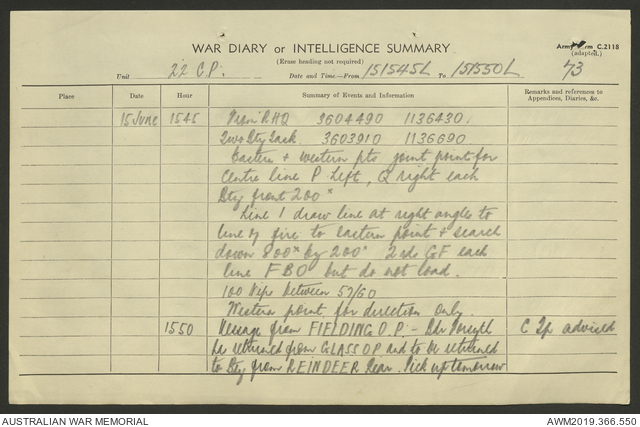 WAR DIARY or INTELLIGENCE SUMMARY
Army Form C.2118
(adapted.)
(Erase heading not required)
Unit 22 C.P. Date and Time—From 151545L To 151550L 73
Place Date Hour Summary of Events and Information Remarks and references to Appendices, Diaries, &c.
15 June 1545 RHQ 3604490 1136430.
Two Bty Task. 3603910 1136690
Eastern + western pts joint point for
Centre line P left, Q right each
Bty front 200x
Line 1 draw line at right angles to
line of fire to eastern point + search
down 800x by 200x 2 rds GF each
line FBO but do not load.
100 between 57/60
Western point for direction only.
1550 Message from FIELDING O.P. - Bdr Forsyth C Tp advised
has returned from GLASS OP and to be returned
to Bty from REINDEER Rear. Pick up tomorrow
AUSTRALIAN WAR MEMORIAL AWM2019.366.550